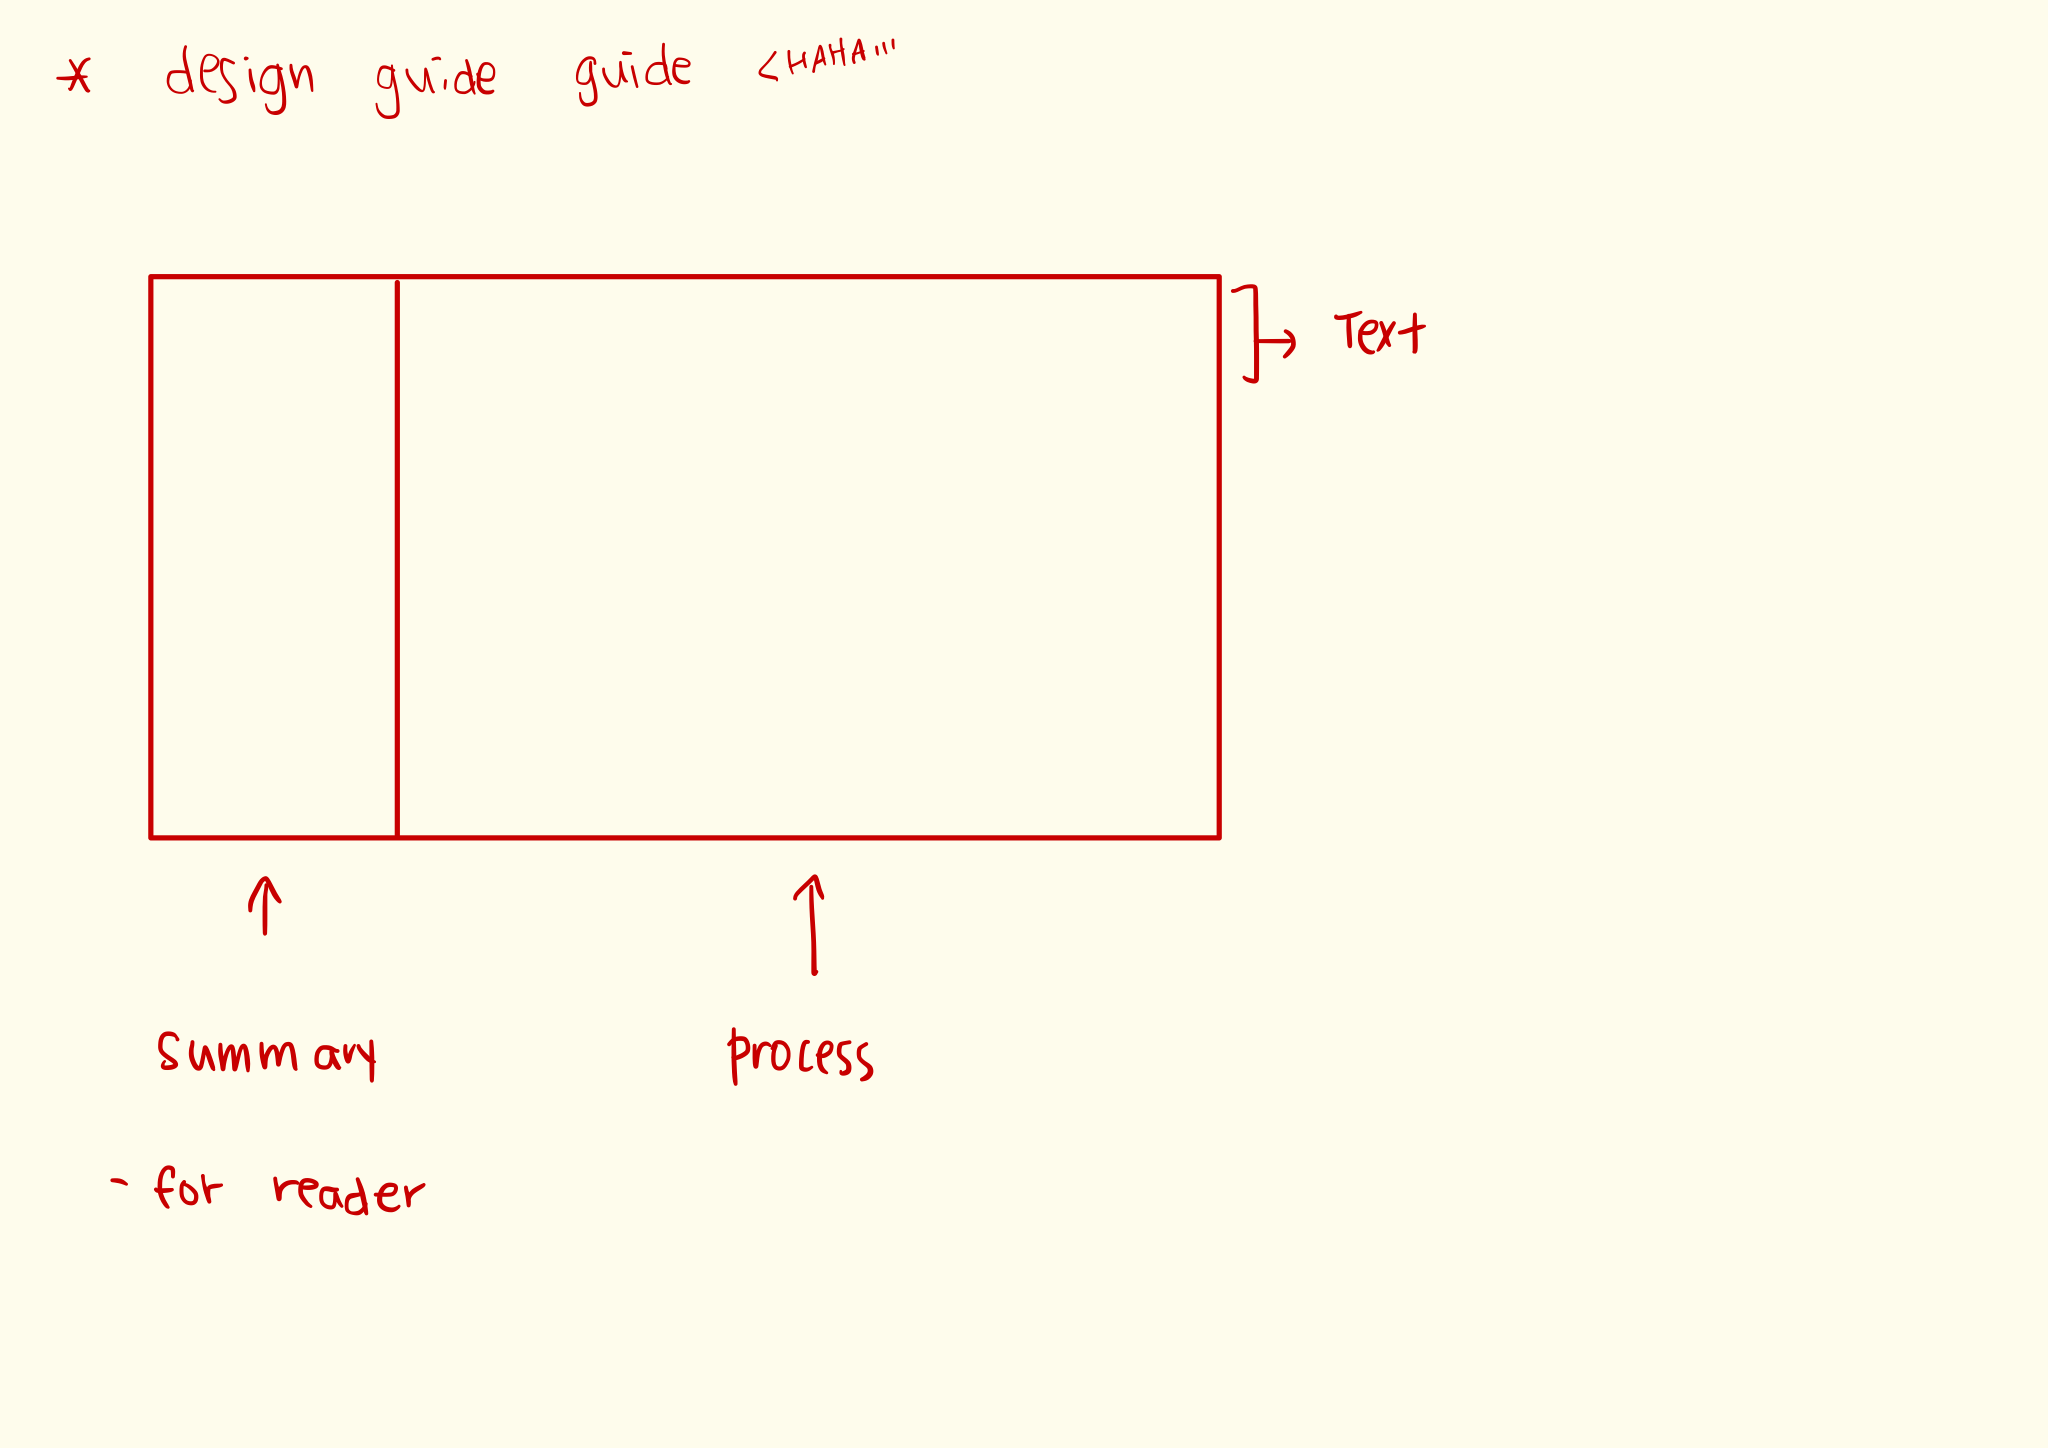 * design guide guide <HAHA"'
Text
summary
process
- for reader